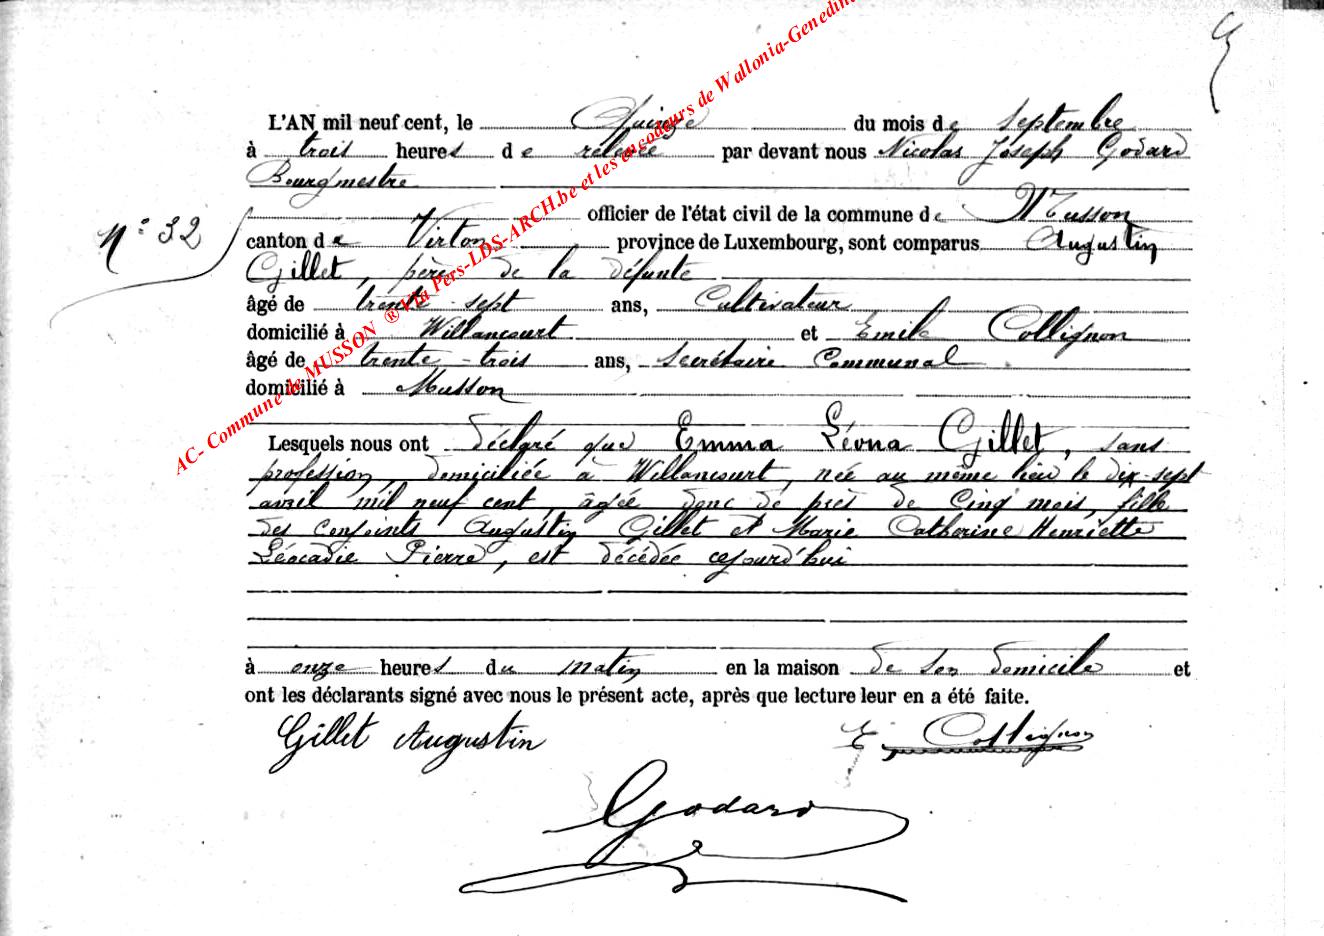 L'AN mil neuf cent, le Quinze du mois de septembre
à trois heures de relevée par devant nous Nicolas Joseph Godard
Bourgmestre
officier de l'état civil de la commune de Musson
N° 32
canton de Virton province de Luxembourg, sont comparus Augustin
Gillet, père de la défunte
âgé de trente-sept ans, Cultivateur
domicilié à Willancourt et Emile Collignon
âgé de trente-trois ans, secrétaire Communal
domicilié à Musson
Lesquels nous ont déclaré que Emma Léona Gillet, sans
profession, domiciliée à Willancourt, née au même lieu le dix-sept
avril mil neuf cent, âgée donc de près de Cinq mois, fille
des conjoints Augustin Gillet et Marie Catherine Henriette
Léocadie Pierre, est décédée cejourd'hui
à onze heures du matin en la maison de son domicile et
ont les déclarants signé avec nous le présent acte, après que lecture leur en a été faite.
Gillet Augustin E. Collignon
Godard
AC- Commune de MUSSON ® Via Pers-LDS-ARCH.be et les encodeurs de Wallonia-Genedin